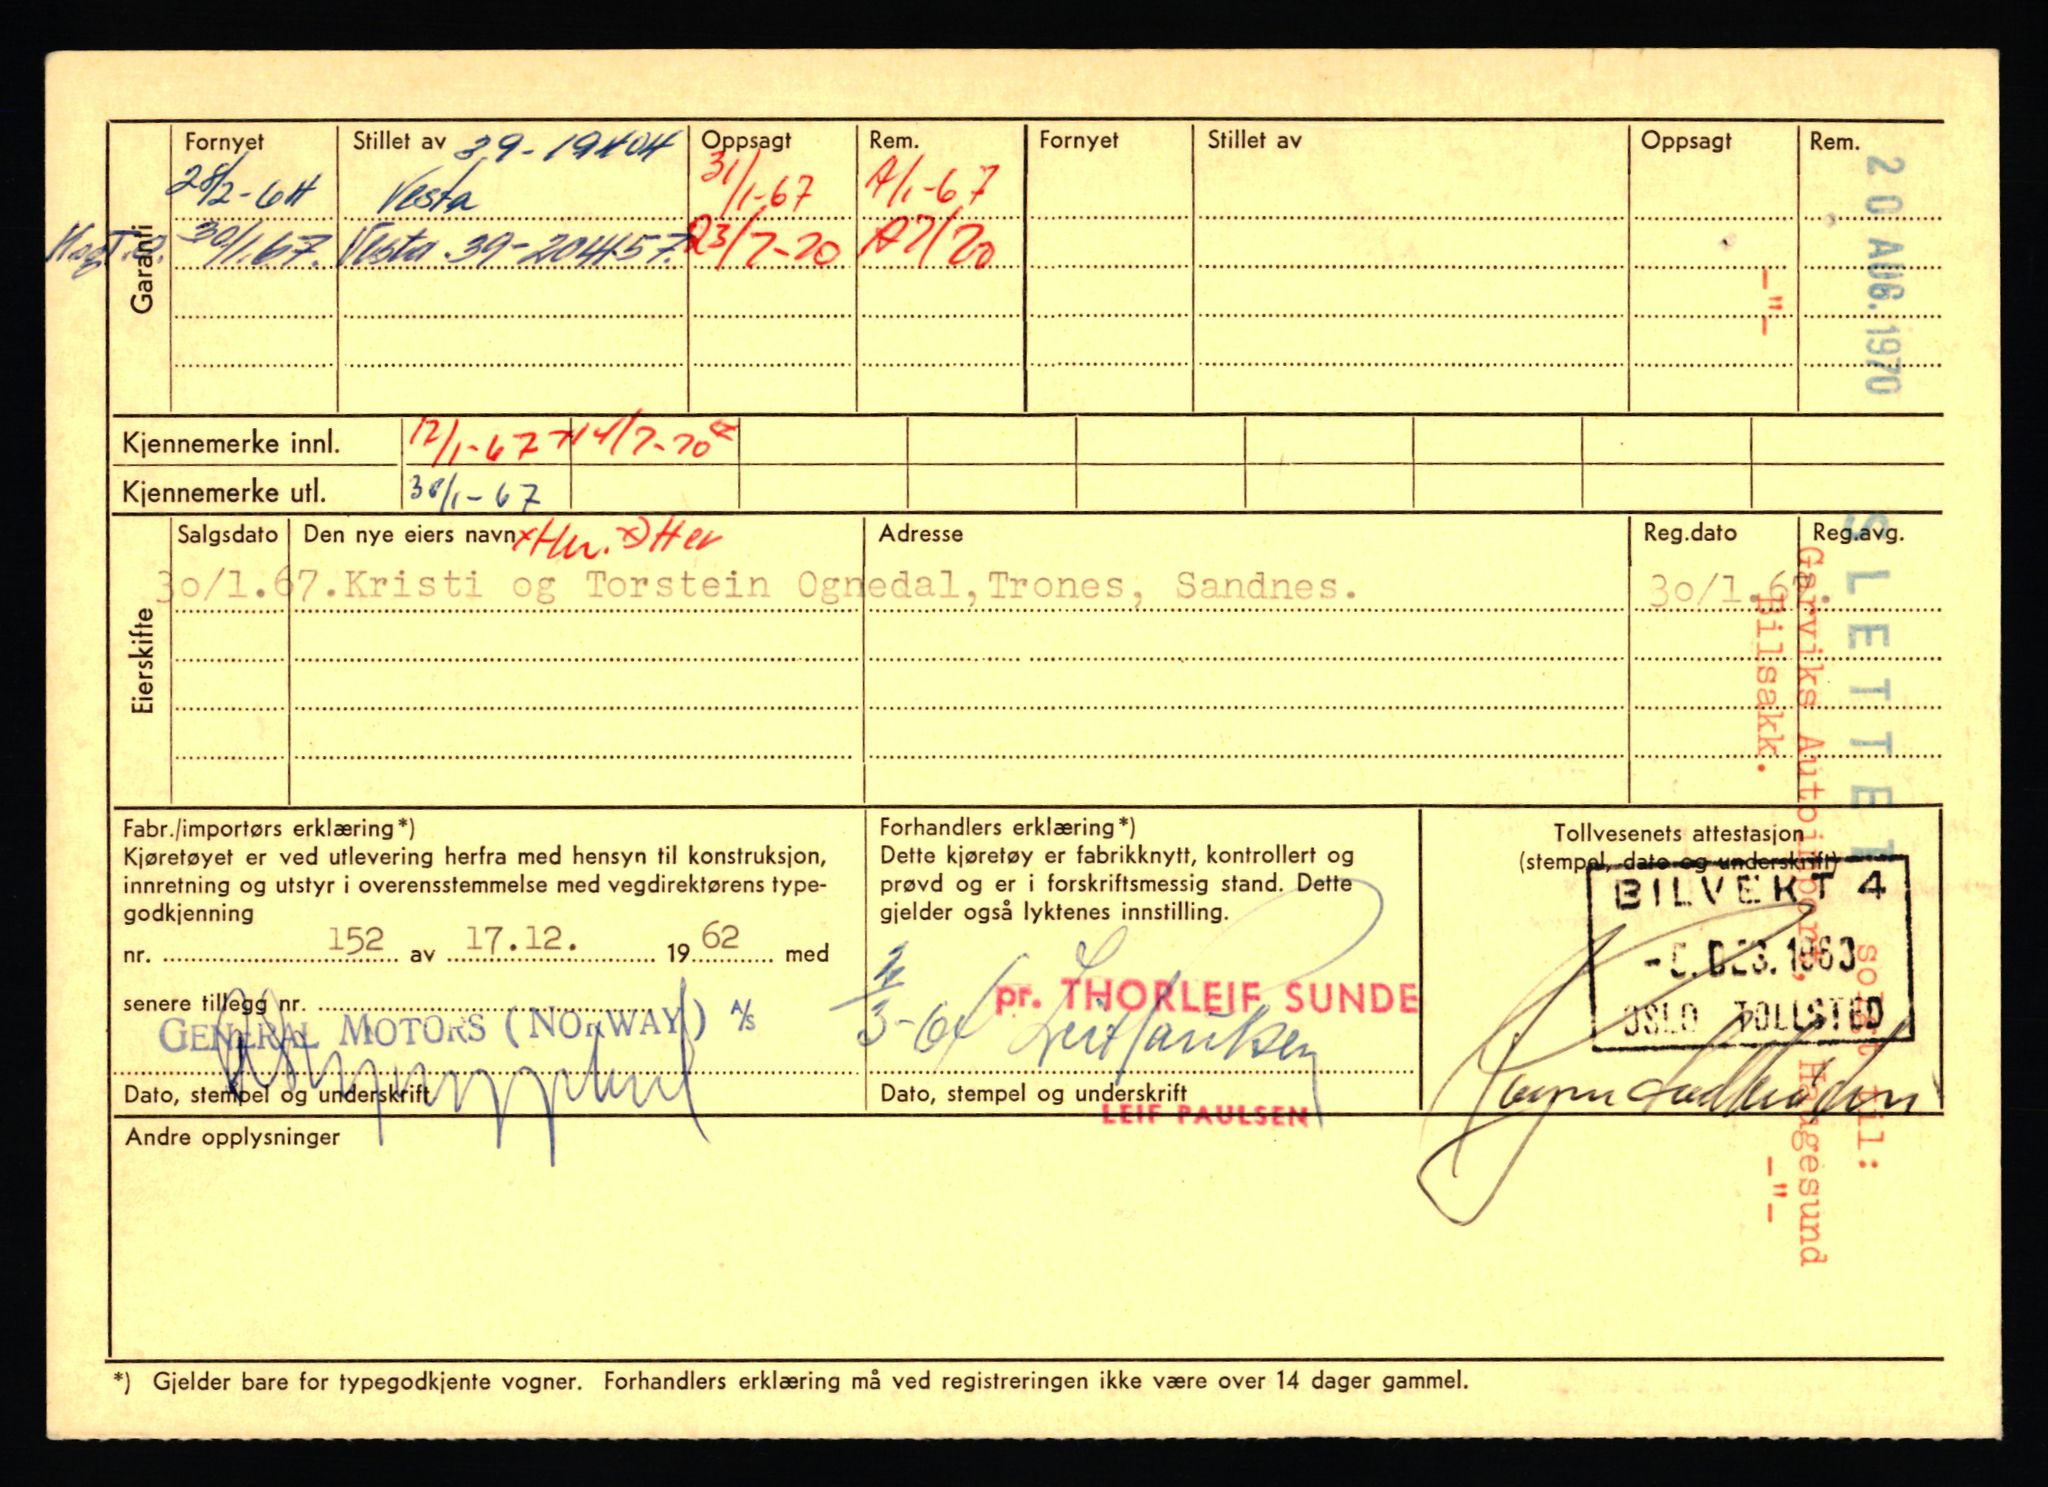 Garanti
Fornyet Stillet av 39-19404 Oppsagt Rem. Fornyet Stillet av Oppsagt Rem.
28/2-64 Vesta 31/1-67 A/1-67
30/1.67. Vesta. 39-204457. 23/7-70 A7/70
Kjennemerke innl. 12/1-67 14/7-70
Kjennemerke utl. 30/1-67
Eierskifte
Salgsdato Den nye eiers navn Adresse Reg.dato Reg.avg.
30/1.67. Kristi og Torstein Ognedal, Trones, Sandnes. 30/1.67.
Fabr./importørs erklæring*)
Kjøretøyet er ved utlevering herfra med hensyn til konstruksjon,
innretning og utstyr i overensstemmelse med vegdirektørens type-
godkjenning
nr. 152 av 17.12. 1962 med
senere tillegg nr.
GENERAL MOTORS (NORWAY) A/S
Dato, stempel og underskrift
Forhandlers erklæring*)
Dette kjøretøy er fabrikknytt, kontrollert og
prøvd og er i forskriftsmessig stand. Dette
gjelder også lyktenes innstilling.
2/3-64 pr. THORLEIF SUNDE
Leif Paulsen
Dato, stempel og underskrift
LEIF PAULSEN
Tollvesenets attestasjon
(stempel, dato og underskrift)
BILVEKT 4
DES. 1963
OSLO TOLLSTED
Andre opplysninger
*) Gjelder bare for typegodkjente vogner. Forhandlers erklæring må ved registreringen ikke være over 14 dager gammel.
20 AUG. 1970
SLETTET
solgt til:
Garviks Autoimport, Haugesund
-"- Bilsakk. -"-